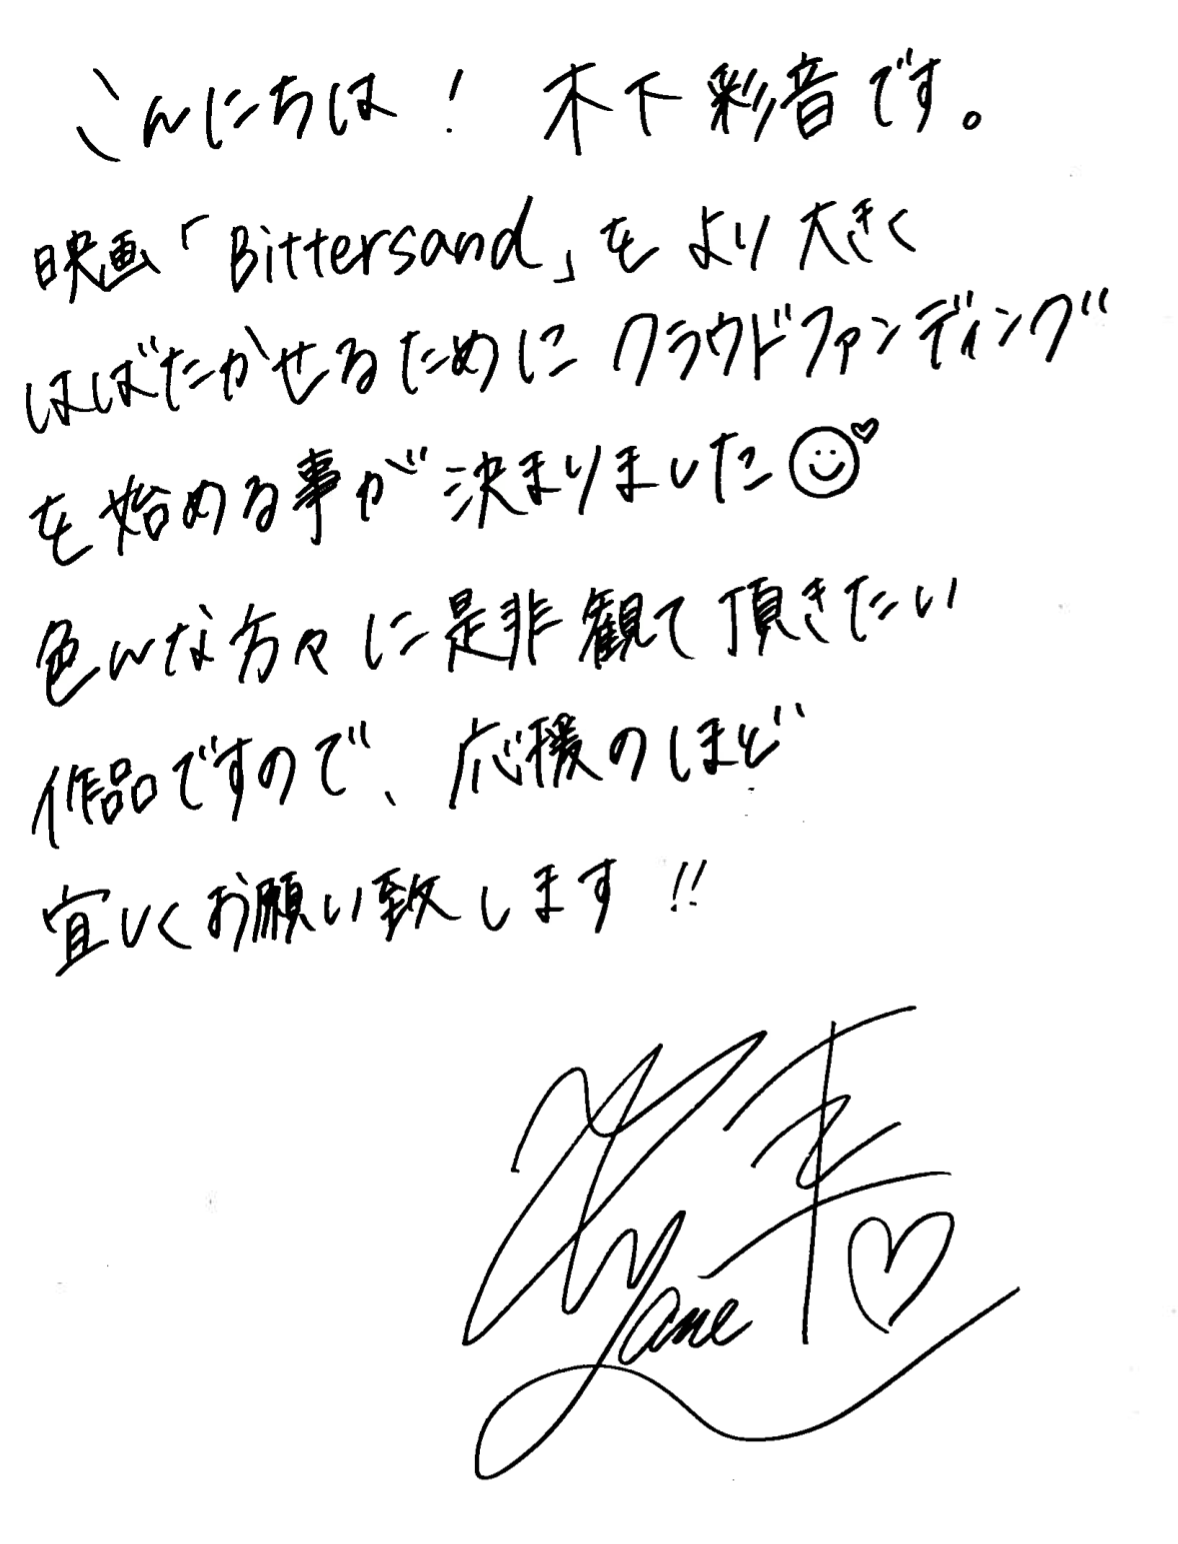 こんにちは! 木下彩音です。
映画「Bittersand」をより大きく
はばたかせるためにクラウドファンディング
を始める事が決まりました
色んな方々に是非観て頂きたい
作品ですので、応援のほど
宜しくお願い致します!!